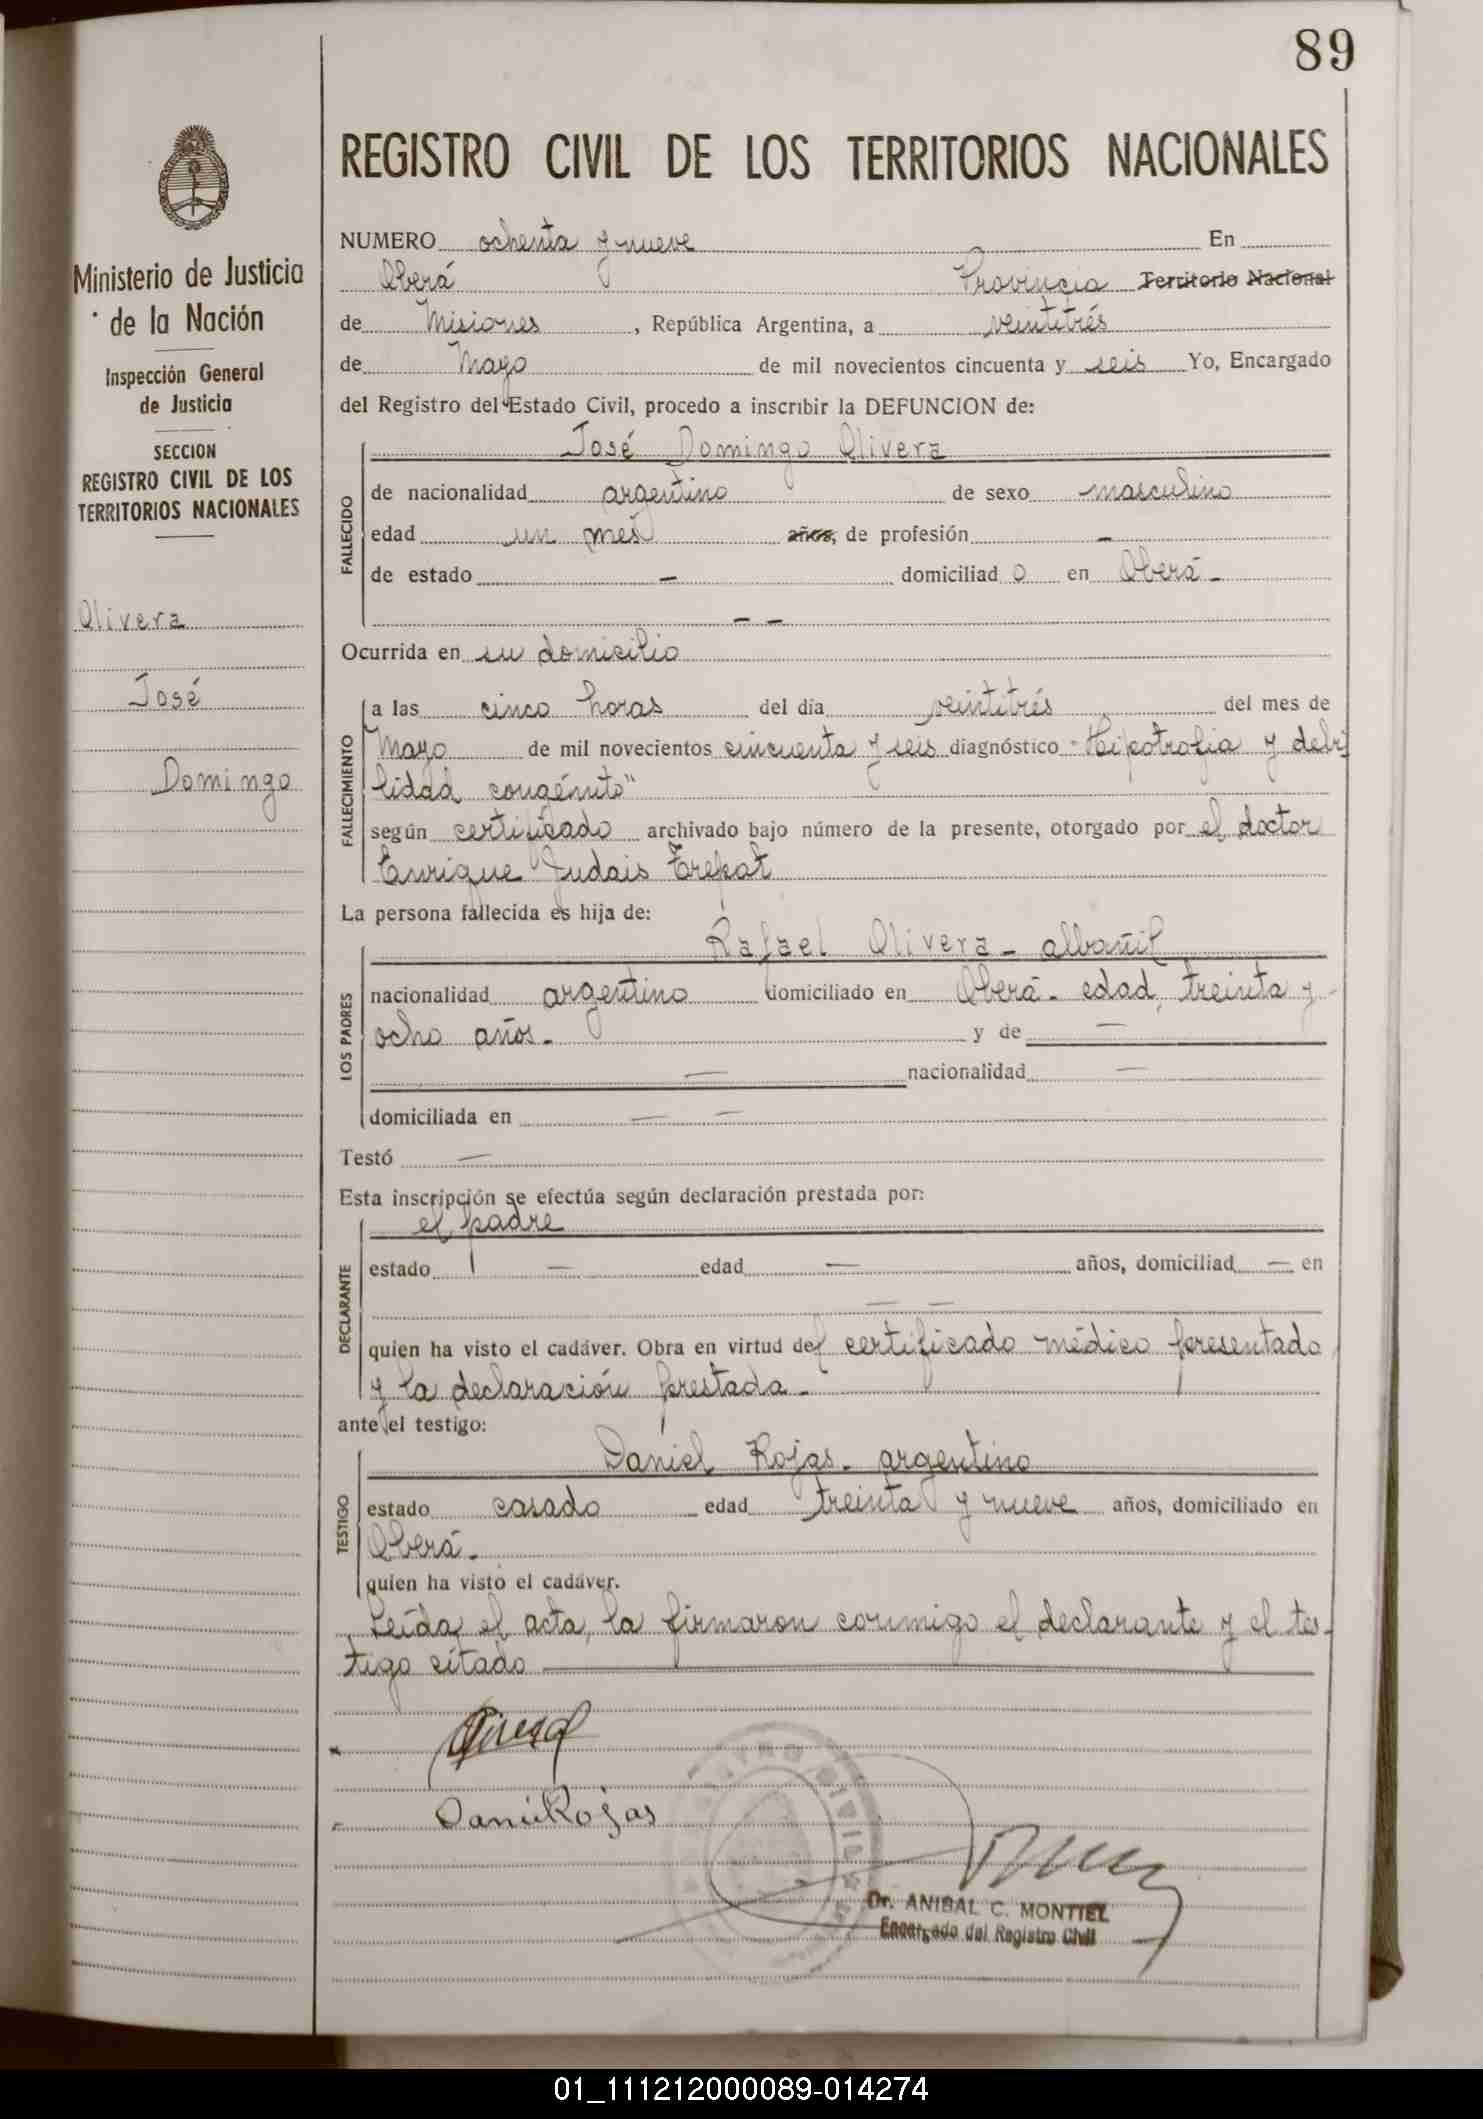 89
Ministerio de Justicia
de la Nación
Inspección General
de Justicia
SECCION
REGISTRO CIVIL DE LOS
TERRITORIOS NACIONALES
Olivera
José
Domingo
REGISTRO CIVIL DE LOS TERRITORIOS NACIONALES
NUMERO ochenta y nueve En
Oberá Provincia Territorio Nacional
de Misiones, República Argentina, a veintitrés
de Mayo de mil novecientos cincuenta y seis Yo, Encargado
del Registro del Estado Civil, procedo a inscribir la DEFUNCION de:
FALLECIDO
José Domingo Olivera
de nacionalidad argentino de sexo masculino
edad un mes años, de profesión -
de estado - domiciliado en Oberá -
- -
Ocurrida en su domicilio
FALLECIMIENTO
a las cinco horas del día veintitrés del mes de
Mayo de mil novecientos cincuenta y seis diagnóstico "Hipotrofia y debi
lidad congénito"
según certificado archivado bajo número de la presente, otorgado por el doctor
Enrique Judais Trepat
La persona fallecida es hija de:
LOS PADRES
Rafael Olivera - albañil
nacionalidad argentino domiciliado en Oberá - edad, treinta y
ocho años. - y de —
— nacionalidad —
domiciliada en — —
Testó —
Esta inscripción se efectúa según declaración prestada por:
DECLARANTE
el padre
estado — edad — años, domiciliad — en
— —
quien ha visto el cadáver. Obra en virtud del certificado médico presentado
y la declaración prestada -
ante el testigo:
TESTIGO
Daniel Rojas - argentino
estado casado edad treinta y nueve años, domiciliado en
Oberá -
quien ha visto el cadáver.
Leída el acta, la firmaron conmigo el declarante y el tes-
tigo citado
Dani Rojas
REGISTRO CIVIL
Dr. ANIBAL C. MONTIEL
Encargado del Registro Civil
01_111212000089-014274